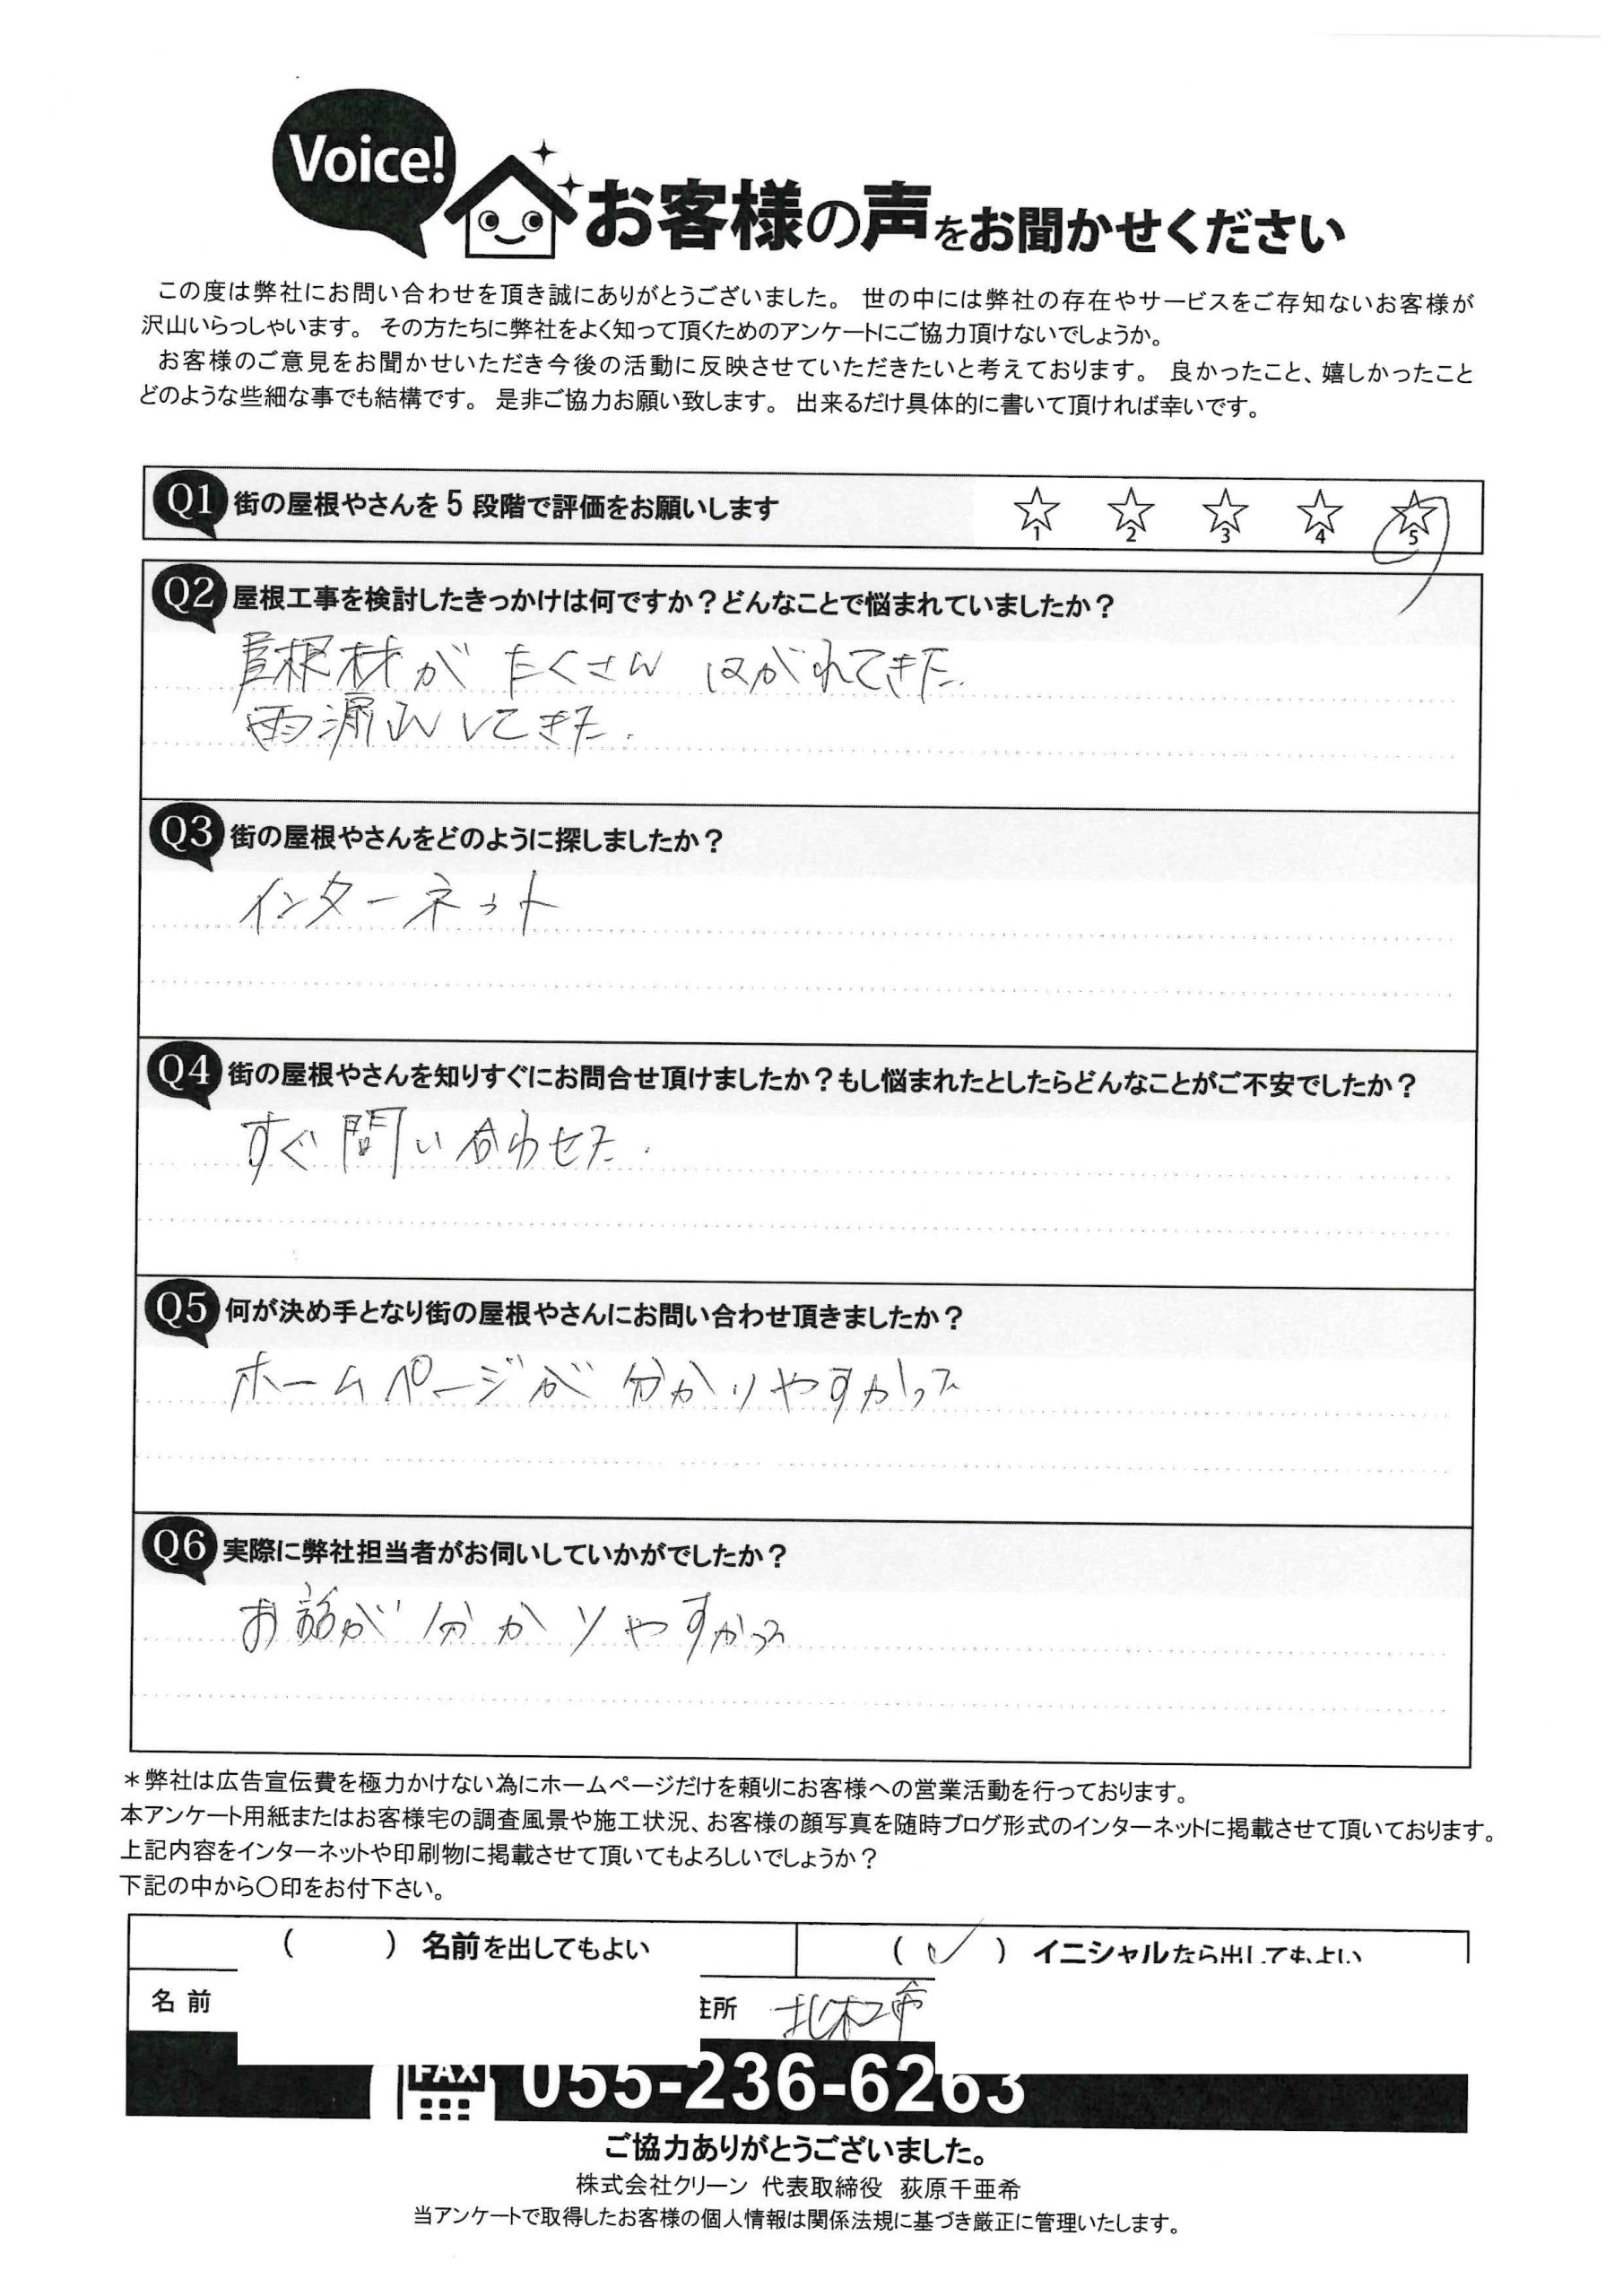 Voice!
お客様の声をお聞かせください
この度は弊社にお問い合わせを頂き誠にありがとうございました。 世の中には弊社の存在やサービスをご存知ないお客様が
沢山いらっしゃいます。 その方たちに弊社をよく知って頂くためのアンケートにご協力頂けないでしょうか。
お客様のご意見をお聞かせいただき今後の活動に反映させていただきたいと考えております。 良かったこと、嬉しかったこと
どのような些細な事でも結構です。 是非ご協力お願い致します。 出来るだけ具体的に書いて頂ければ幸いです。
Q1 街の屋根やさんを5段階で評価をお願いします ☆1 ☆2 ☆3 ☆4 ☆5
Q2 屋根工事を検討したきっかけは何ですか？どんなことで悩まれていましたか？
屋根材が たくさん はがれてきた.
雨漏りしてきた.
Q3 街の屋根やさんをどのように探しましたか？
インターネット
Q4 街の屋根やさんを知りすぐにお問合せ頂けましたか？もし悩まれたとしたらどんなことがご不安でしたか？
すぐ問い合わせた.
Q5 何が決め手となり街の屋根やさんにお問い合わせ頂きましたか？
ホームページが 分かりやすかった
Q6 実際に弊社担当者がお伺いしていかがでしたか？
お話が 分かりやすかった
＊弊社は広告宣伝費を極力かけない為にホームページだけを頼りにお客様への営業活動を行っております。
本アンケート用紙またはお客様宅の調査風景や施工状況、お客様の顔写真を随時ブログ形式のインターネットに掲載させて頂いております。
上記内容をインターネットや印刷物に掲載させて頂いてもよろしいでしょうか？
下記の中から〇印をお付下さい。
（　　）名前を出してもよい （✓）イニシャルなら出してもよい
名前 住所 北杜市
FAX 055-236-6263
ご協力ありがとうございました。
株式会社クリーン 代表取締役 荻原千亜希
当アンケートで取得したお客様の個人情報は関係法規に基づき厳正に管理いたします。